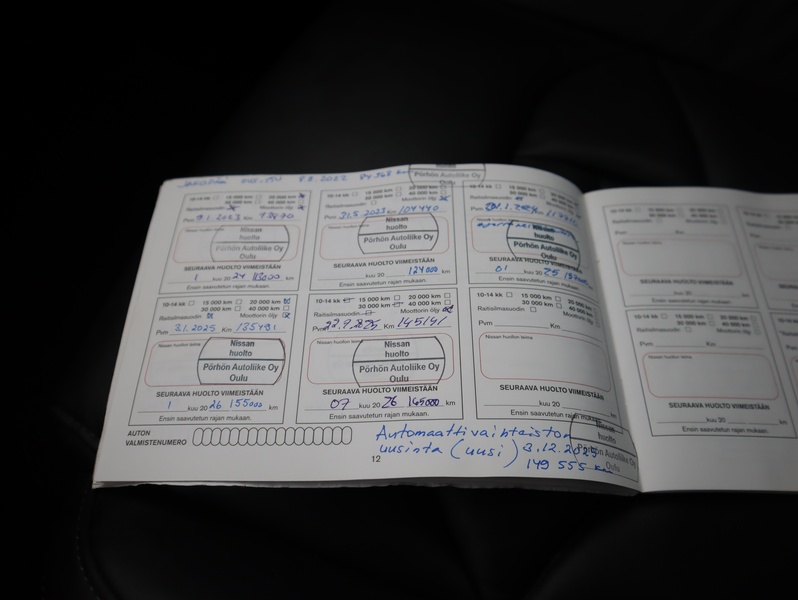 8.8.2022
Nissan
huolto
Pörhön Autoliike Oy
10-14 kk 15 000 km 20 000 km
30 000 km 40 000 km
Raitisilmasuodin Moottorin öljy
Pvm 9.1.2023 Km
Nissan huollon leima
Nissan
huolto
Pörhön Autoliike Oy
Oulu
SEURAAVA HUOLTO VIIMEISTÄÄN
1 kuu 20 24 km
Ensin saavutetun rajan mukaan.
10-14 kk 15 000 km 20 000 km
30 000 km 40 000 km
Raitisilmasuodin Moottorin öljy
Pvm 31.5.2023 Km 104440
Nissan huollon leima
Nissan
huolto
Pörhön Autoliike Oy
Oulu
SEURAAVA HUOLTO VIIMEISTÄÄN
kuu 20 124000 km
Ensin saavutetun rajan mukaan.
Nissan
huolto
Pörhön Autoliike Oy
Oulu
SEURAAVA HUOLTO VIIMEISTÄÄN
01 kuu 20 25
Ensin saavutetun rajan mukaan.
10-14 kk 15 000 km 20 000 km
30 000 km 40 000 km
Raitisilmasuodin Moottorin öljy
Pvm 3.1.2025 Km 135491
Nissan huollon leima
Nissan
huolto
Pörhön Autoliike Oy
Oulu
SEURAAVA HUOLTO VIIMEISTÄÄN
1 kuu 20 26 155000 km
Ensin saavutetun rajan mukaan.
10-14 kk 15 000 km 20 000 km
30 000 km 40 000 km
Raitisilmasuodin Moottorin öljy
Pvm 22.9.2025 Km 145141
Nissan huollon leima
Nissan
huolto
Pörhön Autoliike Oy
Oulu
SEURAAVA HUOLTO VIIMEISTÄÄN
07 kuu 20 26 165000 km
Ensin saavutetun rajan mukaan.
10-14 kk 15 000 km 20 000 km
30 000 km 40 000 km
Raitisilmasuodin Moottorin öljy
Pvm Km
Nissan huollon leima
SEURAAVA HUOLTO VIIMEISTÄÄN
kuu 20 km
Ensin saavutetun rajan mukaan.
AUTON
VALMISTENUMERO
Automaattivaihteiston
uusinta (uusi) 3.12.2025
149 555 km
huolto
Pörhön Autoliike Oy
Oulu
12
10-14 kk 15 000 km 20 000 km
30 000 km 40 000 km
Raitisilmasuodin Moottorin öljy
Pvm Km
SEURAAVA HUOLTO VIIMEISTÄÄN
kuu 20 km
Ensin saavutetun rajan mukaan.
10-14 kk 15 000 km 20 000 km
30 000 km 40 000 km
Raitisilmasuodin Moottorin öljy
Pvm Km
Nissan huollon leima
SEURAAVA HUOLTO VIIMEISTÄÄN
kuu 20 km
Ensin saavutetun rajan mukaan.